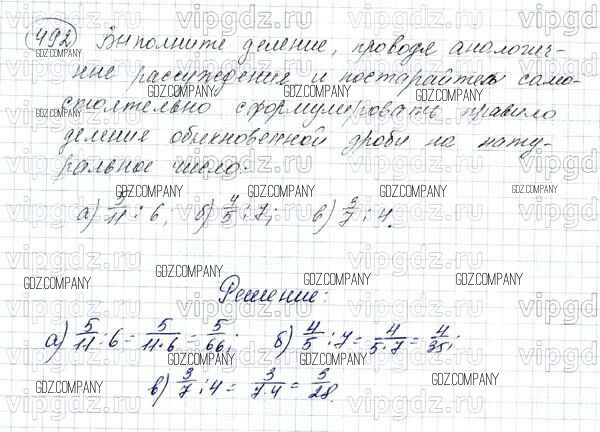 492 Выполните деление, проводя аналогич-
ные рассуждения и постарайтесь само-
стоятельно сформулировать правило
деления обыкновенной дроби на нату-
ральное число.
а) 5/11 : 6; б) 4/5 : 7; в) 3/7 : 4.
Решение:
а) 5/11 : 6 = 5/11·6 = 5/66; б) 4/5 : 7 = 4/5·7 = 4/35;
в) 3/7 : 4 = 3/7·4 = 3/28.
vipgdz.ru
GDZ.COMPANY